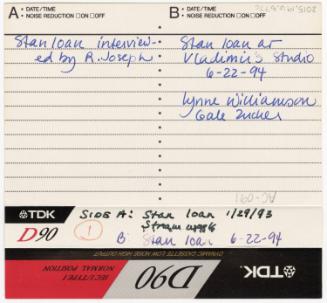 A • DATE/TIME
• NOISE REDUCTION □ON □OFF
Stan loan interview-
ed by R. Joseph
B • DATE/TIME
• NOISE REDUCTION □ON □OFF
Stan loan at
Vladimir's Studio
6-22-94
Lynne Williamson
Gale Zucker
AC-091
TDK
D90
SIDE A: Stan loan 1/29/93
1
B Stan loan 6-22-94
DYNAMIC CASSETTE LOW NOISE HIGH OUTPUT
IECI/TYPE I
NORMAL POSITION
D90
TDK